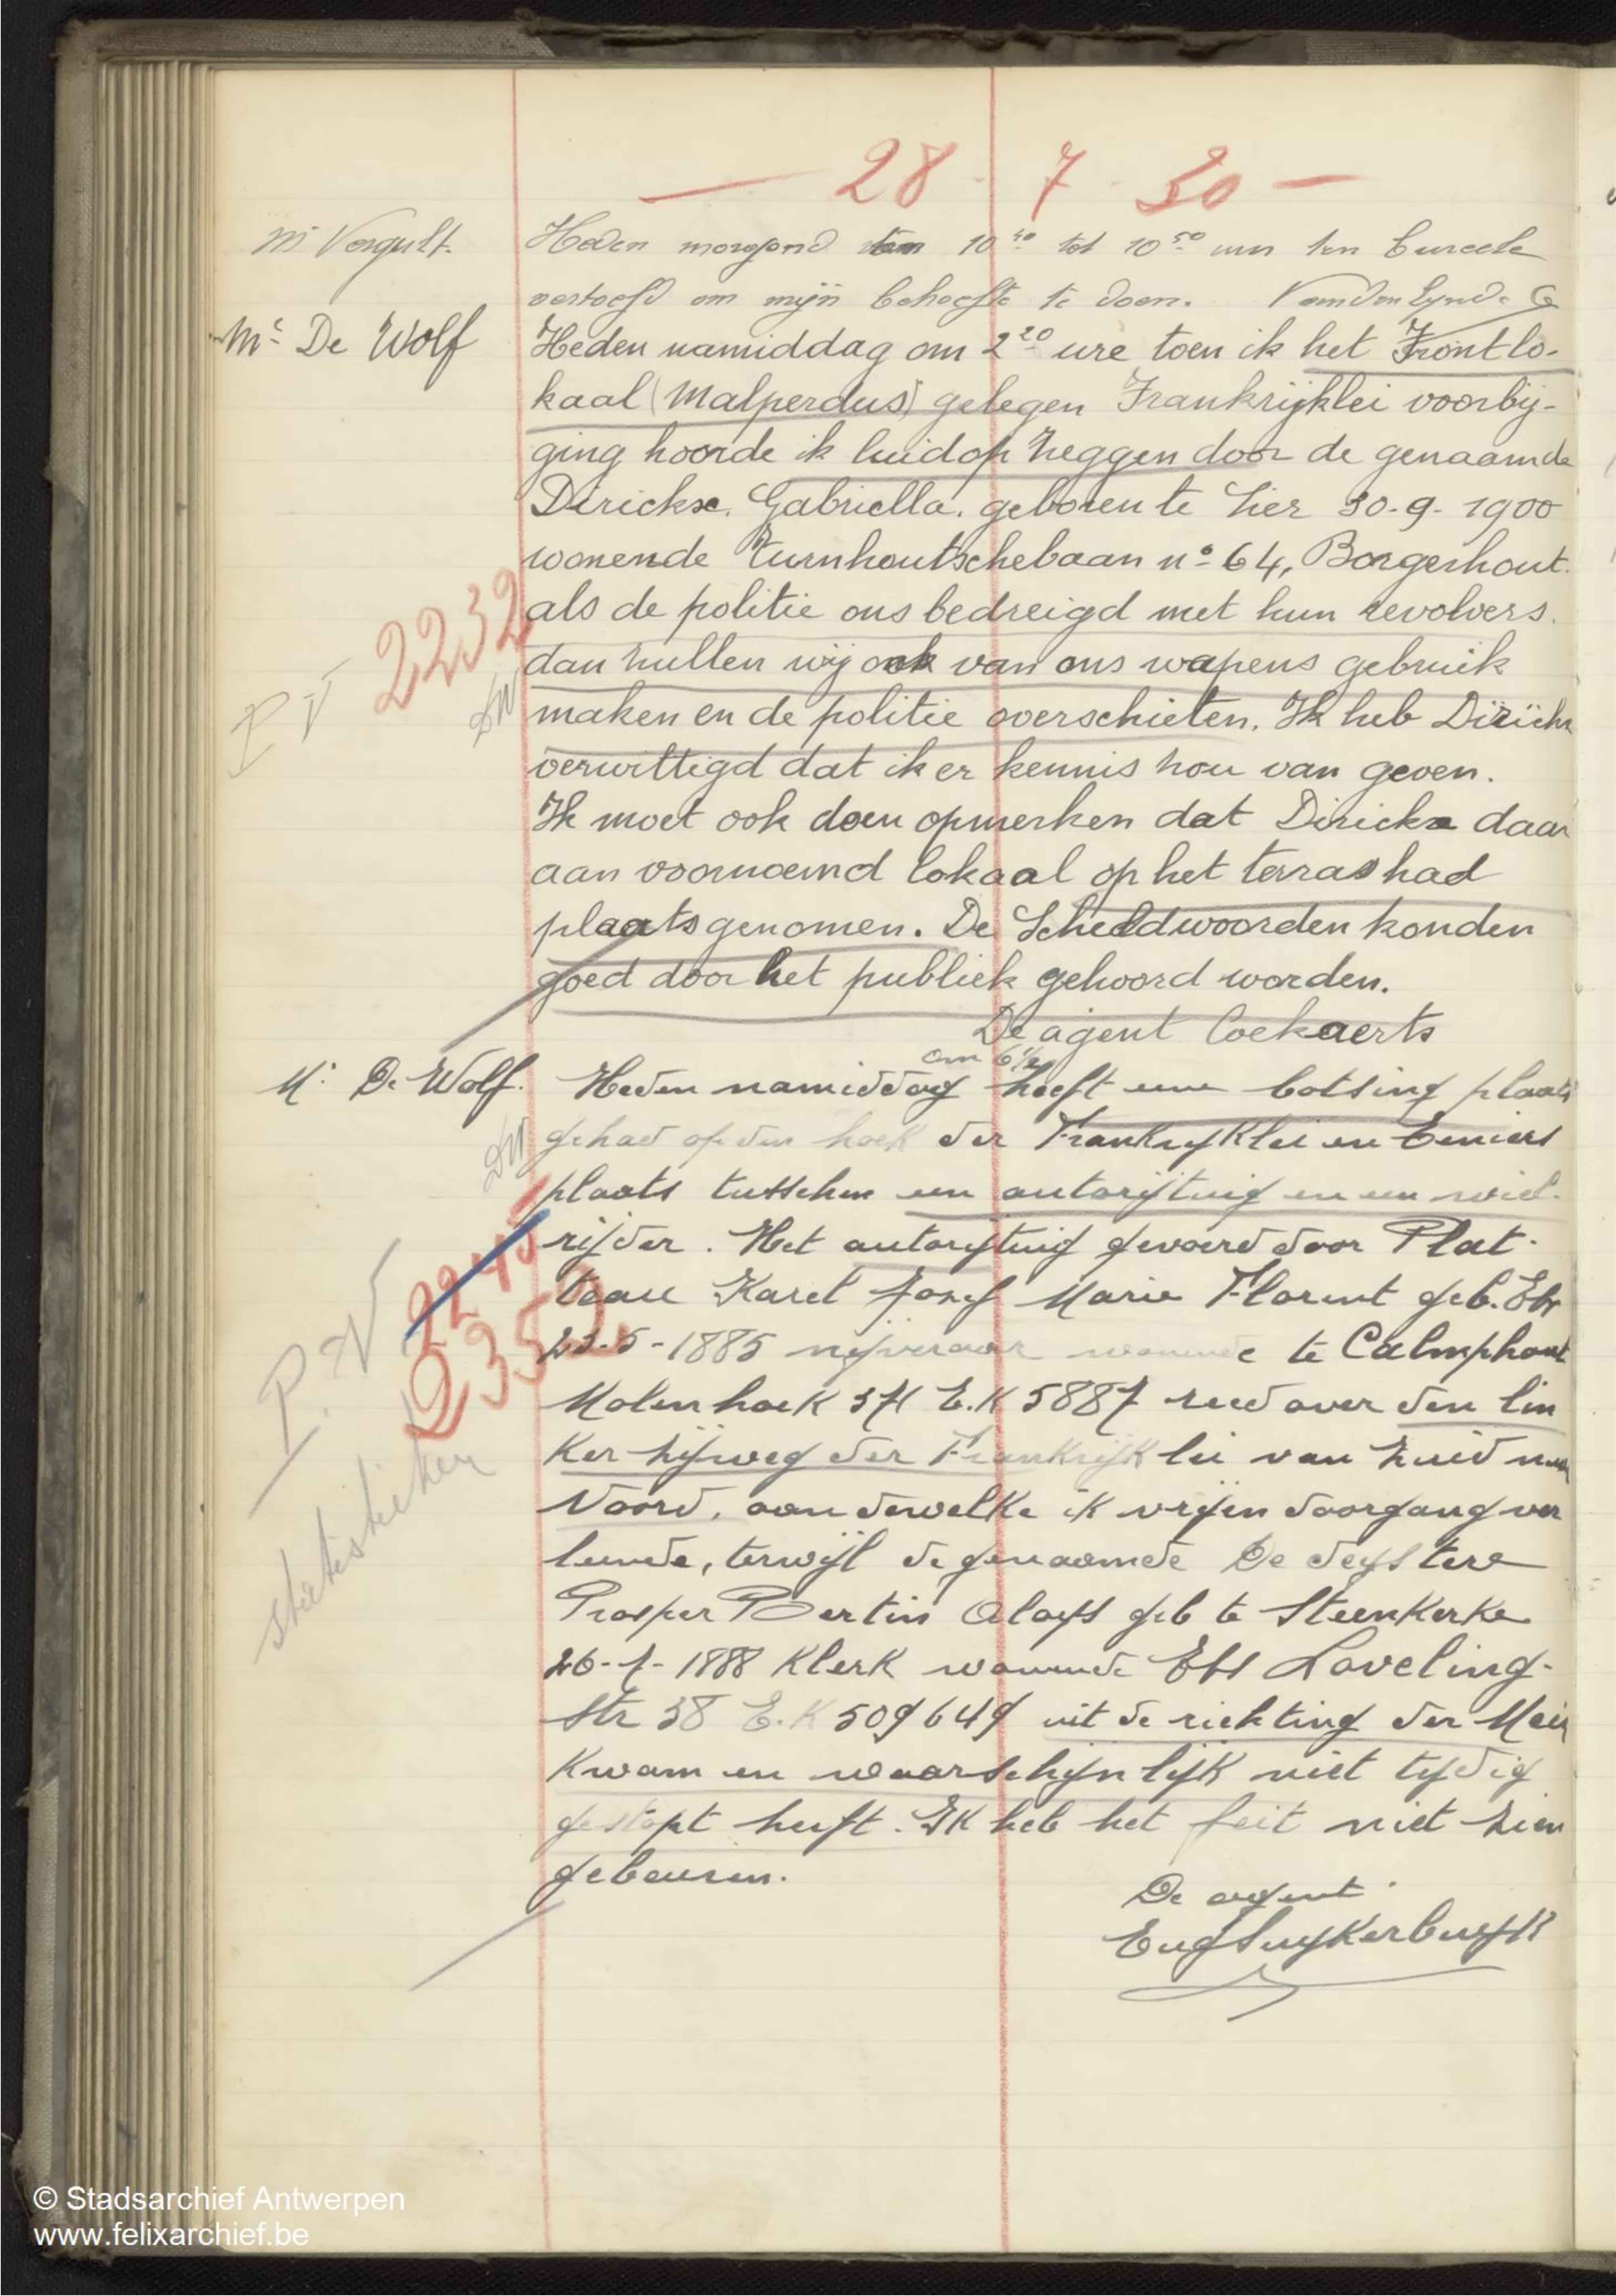 — 28 - 7 - 30 —
Mr Vergult. Heden morgend van 10 40 tot 10 50 uur ten bureele
vertoefd om mijn behoefte te doen. Vanden Eynde G
Mr De Wolf Heden namiddag om 2 20 ure toen ik het Frontlo-
kaal (Malperdus) gelegen Frankrijklei voorbij-
ging hoorde ik luidop zeggen door de genaamde
Dirickx. Gabriella. geboren te Lier 30-9-1900
wonende Turnhoutschebaan nº 64, Borgerhout.
2232
als de politie ons bedreigd met hun revolvers.
P V
dan zullen wij ook van ons wapens gebruik
DW
maken en de politie overschieten. Ik heb Dirickx
verwittigd dat ik er kennis zou van geven.
Ik moet ook doen opmerken dat Dirickx daar
aan voornoemd lokaal op het terras had
plaats genomen. De Scheldwoorden konden
goed door het publiek gehoord worden.
De agent Coekaerts
om 6½
Mr De Wolf. Heden namiddag heeft eene botsing plaats
DW
gehad op den hoek der Frankrijklei en Teniers
plaats tusschen een autorijtuig en een wiel-
rijder. Het autorijtuig gevoerd door Plat-
2245
teau Karel Jozef Marie Florent geb. Ebr
2352
P.V
23-5-1885 nijveraar wonende te Calmphout
Molenhoek 371 E.K 5887 reed over den lin
statistieken
ker zijweg der Frankrijklei van Zuid naar
Noord, aan dewelke ik vrijen doorgang ver
leende, terwijl de genaamde De deystere
Prosper Bertin Aloys geb te Steenkerke
26-7-1888 Klerk wonende Loveling-
Str 38 E.K 509649 uit de richting der Meir
kwam en waarschijnlijk niet tijdig
gestopt heeft. Ik heb het feit niet zien
gebeuren.
De agent
Eug Suykerbuyk
© Stadsarchief Antwerpen
www.felixarchief.be